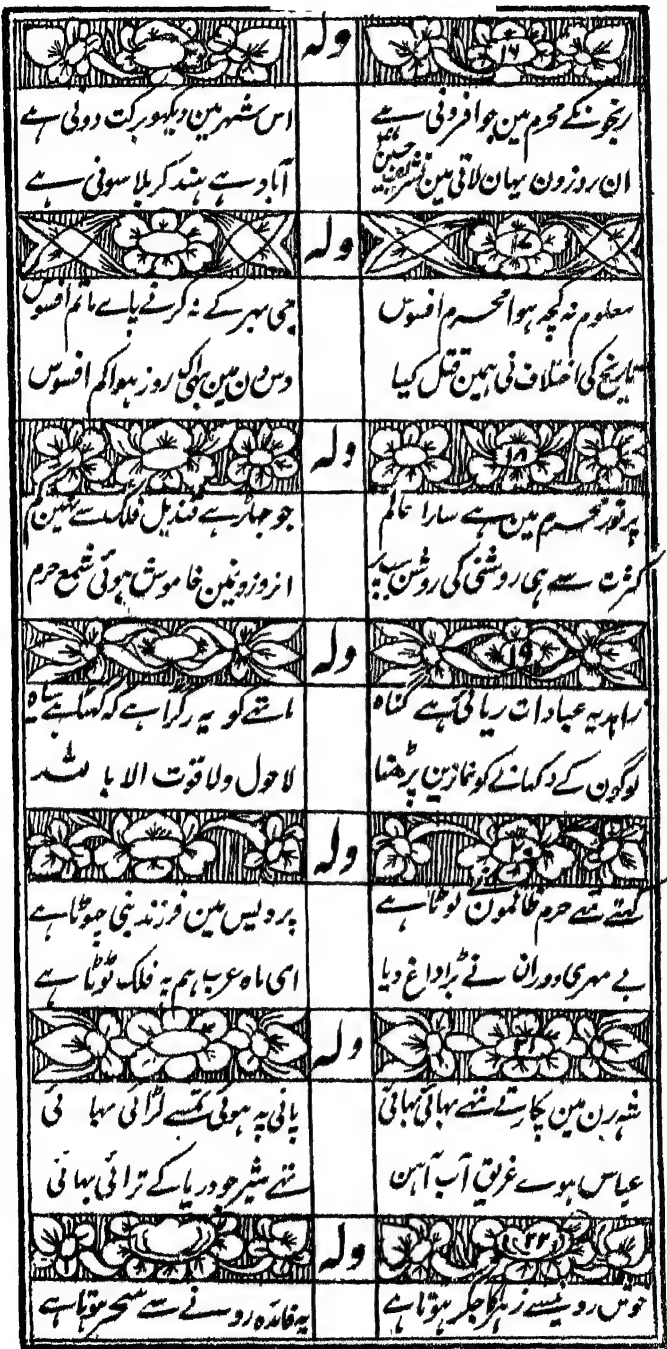 ۱۶ وله
رنجونکے محرم مین جو افزونی ہے اس شہر مین دیکھو برکت دونی ہے
ان روزون یہان لاتی مین تشریف حسین آباد ہے ہند کربلا سونی ہے
۱۷ وله
معلوم نہ کچھ ہوا محرم افسوس جی بہر کے نہ کرنے پاے ماتم افسوس
تاریخ کی اختلاف نی ہمین قتل کیا دس دن مین بہی اک روز ہوا کم افسوس
۱۸ وله
پرنور محرم مین ہے سارا عالم جو جہاڑ ہے قندیل فلک سے نہین کم
کثرت سے ہی روشنی کی روشن سب پر انروزونین خاموش ہوئی شمع حرم
۱۹ وله
زاہد یہ عبادات ریائی ہے گناہ ماتہے کو یہ رگڑا ہے کہ گھٹا ہے سیاہ
لوگون کے دکہانے کو نمازین پڑھنا لاحول ولا قوت الا باللہ
۲۰ وله
کہتے تہے حرم ظالمون نے لوٹا ہے پردیس مین فرزند نبی چہوٹا ہے
بے مہری دوران نے بڑا داغ دیا امی ماہ عرب ہم پہ فلک ٹوٹا ہے
۲۱ وله
شہ رن مین پکارتے تہے بہائی بہائی پانی پہ ہوئی تمسے لڑائی بہائی
عباس ہوے غریق آب آہن تہے شیر جو دریا کے ترائی بہائی
۲۲ وله
خوش رونیسے زہرا کا جگر ہوتا ہے یہ فائدہ رونے سے سحر ہوتا ہے